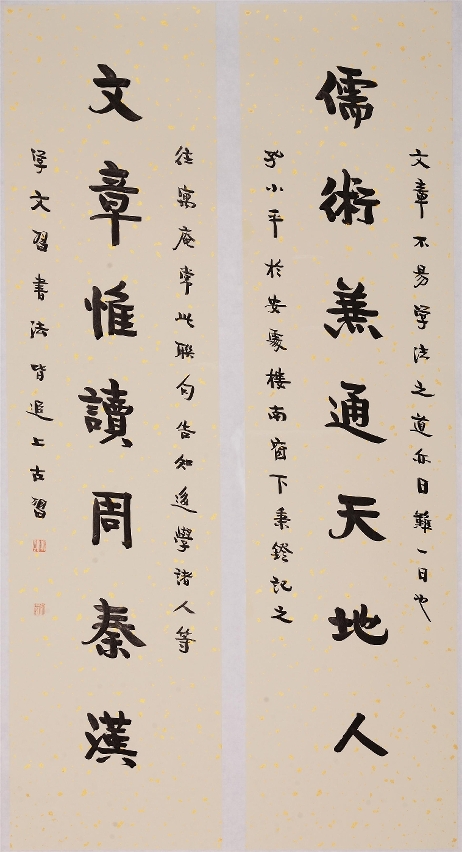 文章不易学法之道亦日難一日也
儒術兼通天地人
孔小平於安處樓南窗下秉鐙記之
往寓庵常此聯句告知後學諸人等
文章惟讀周秦漢
学文習書法皆追上古習